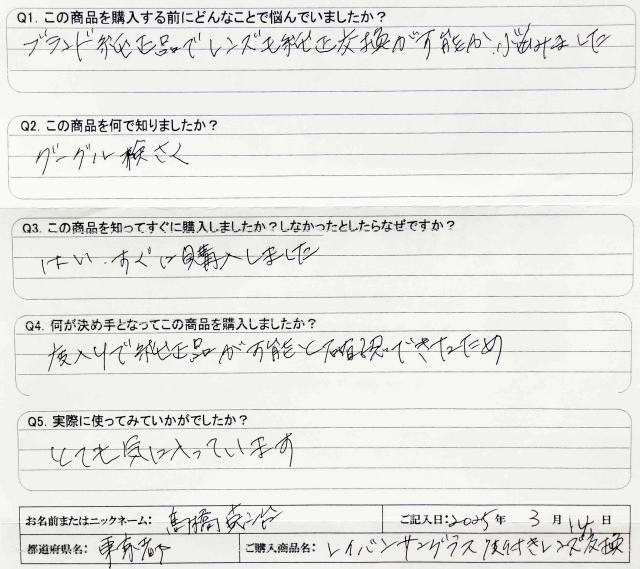 Q1. この商品を購入する前にどんなことで悩んでいましたか？
ブランド純正品でレンズも純正交換が可能か、悩みました
Q2. この商品を何で知りましたか？
グーグル検さく
Q3. この商品を知ってすぐに購入しましたか？しなかったとしたらなぜですか？
はい、すぐに購入しました
Q4. 何が決め手となってこの商品を購入しましたか？
度入りで純正品が可能と確認できたため
Q5. 実際に使ってみていかがでしたか？
とても気に入っています
お名前またはニックネーム: 高橋 ご記入日: 2025年 3月 14日
都道府県名: 東京都 ご購入商品名: レイバンサングラス 度付きレンズ交換